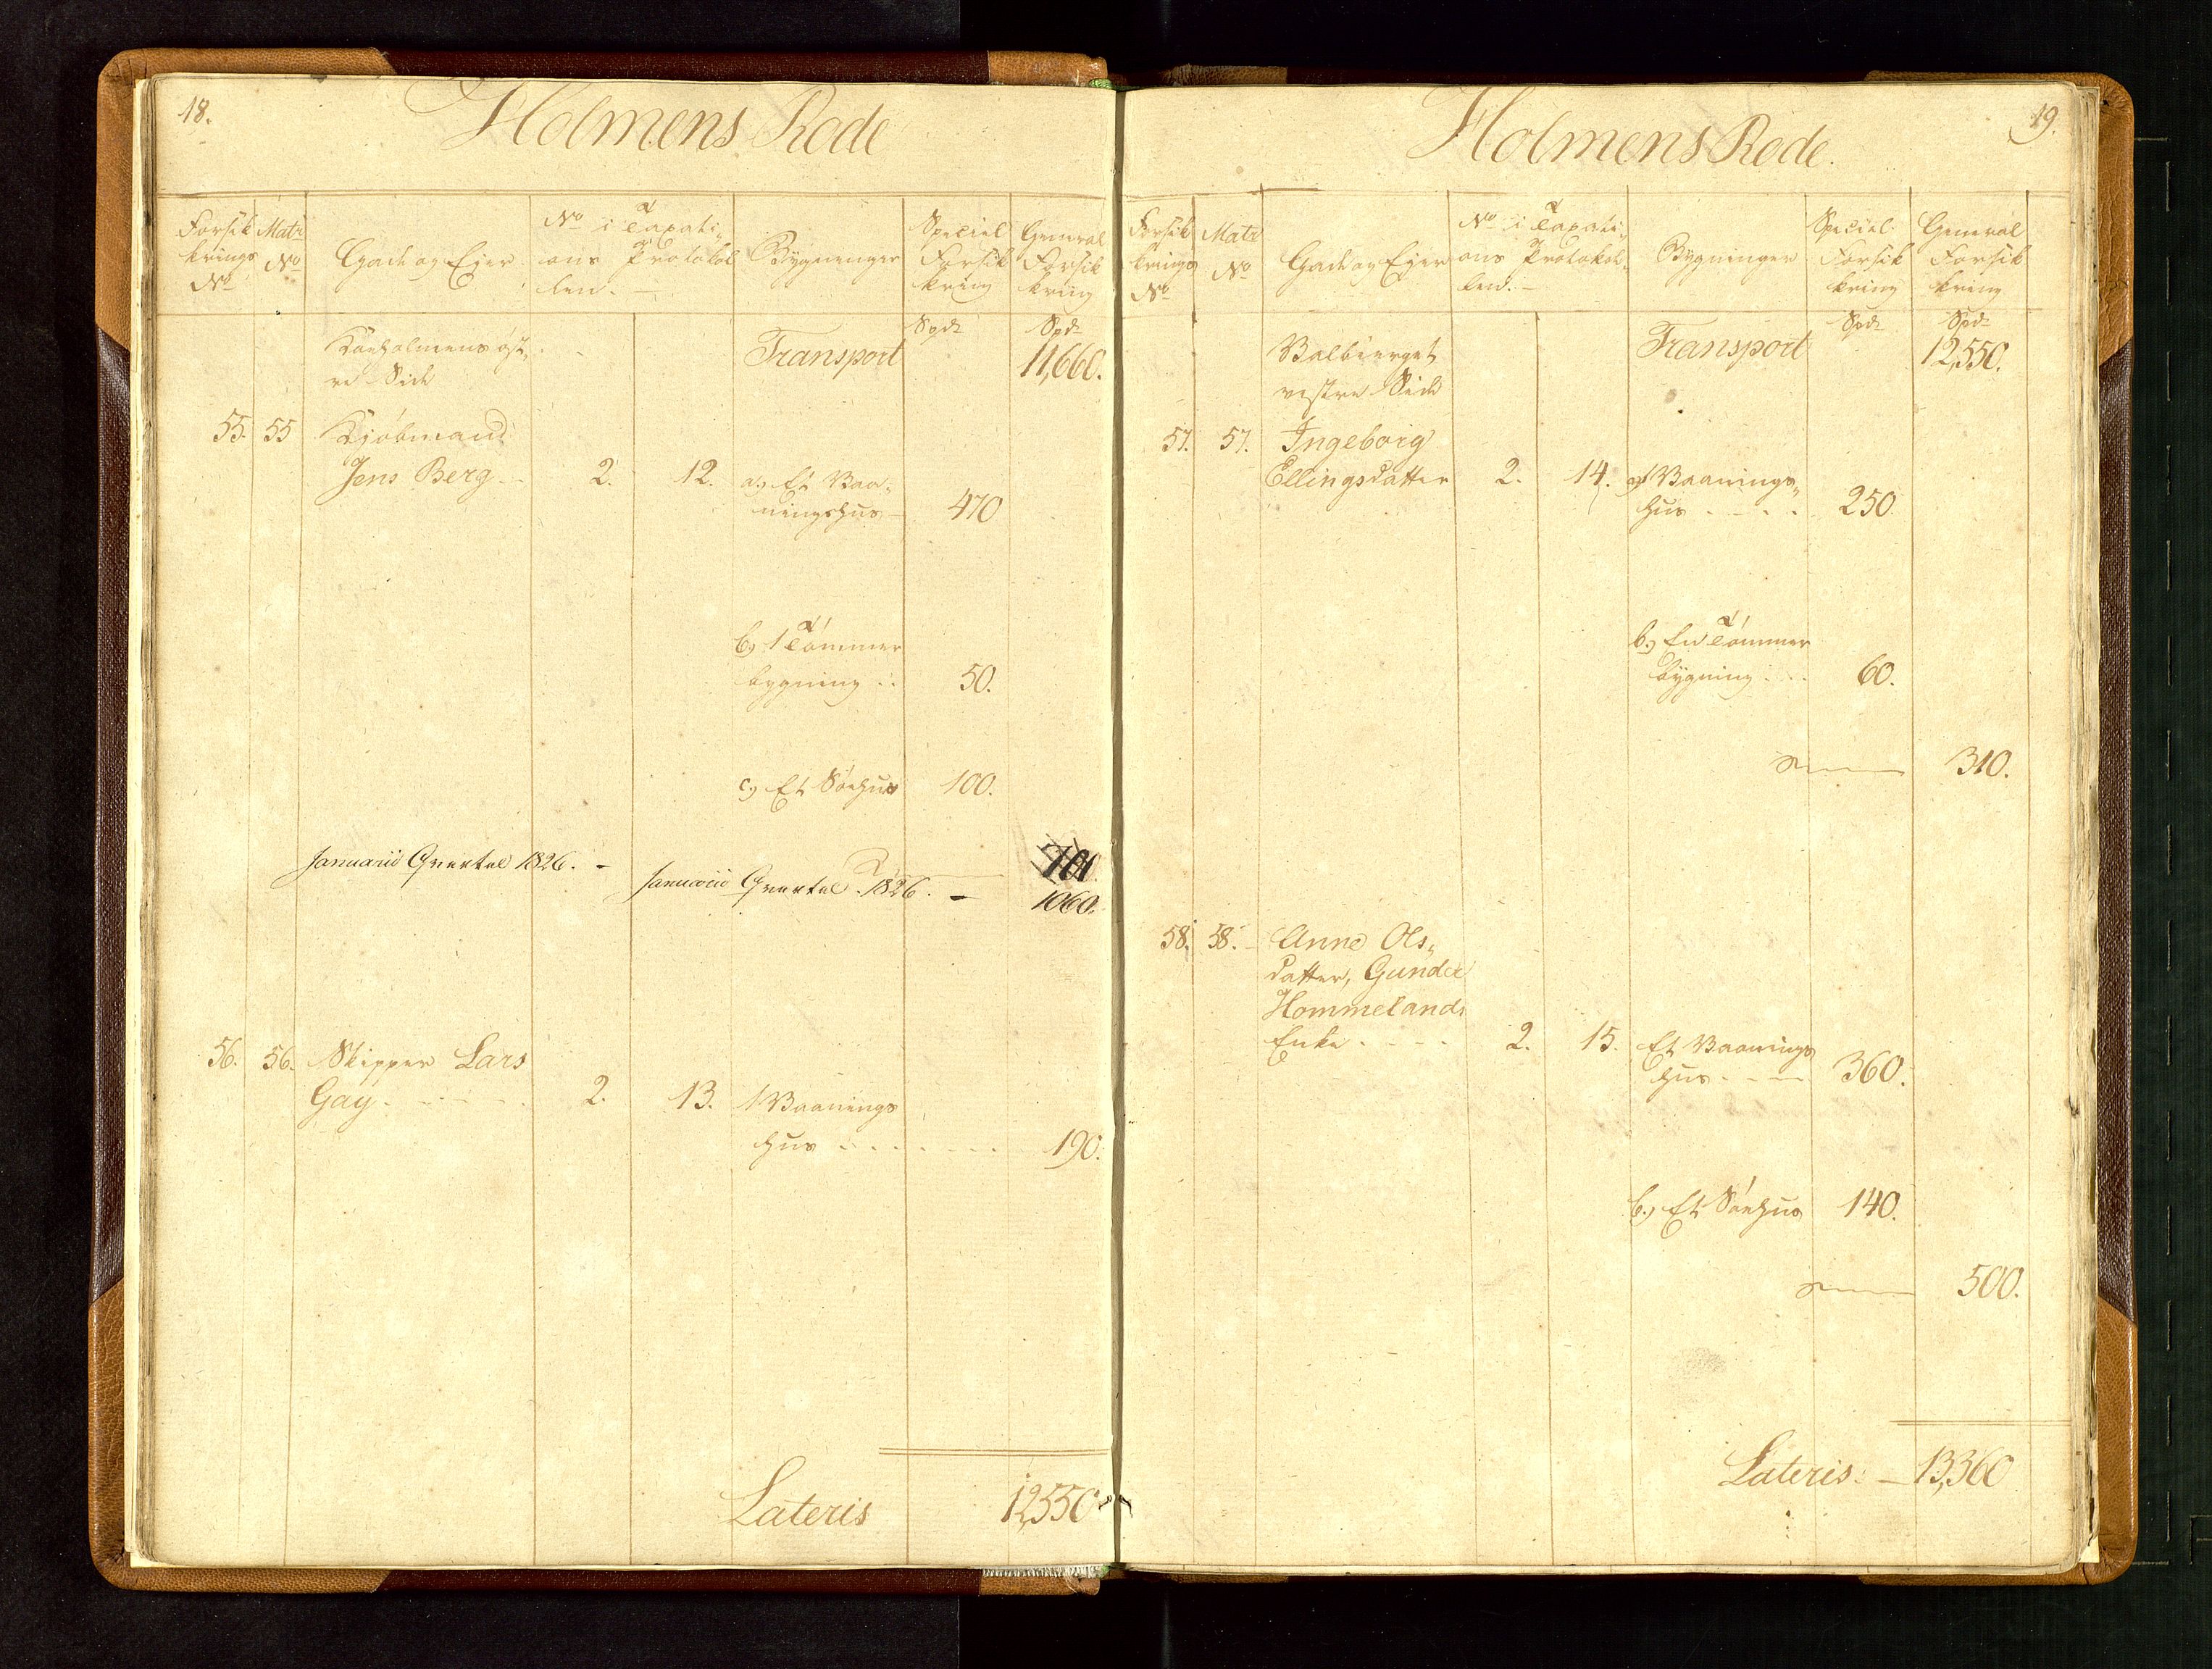 18.
Holmens Rode
Forsik
krings
No
Matr
No
Gade og Ejer
No i Taxati-
ons Protokol
len.
Bygninger
Speciel
Forsik
kring
General
Forsik
kring
Spdr
Spdr
Kaaholmens øst-
re Side
Transport
11,660.
55. 55 Kjøbmand
Jens Berg 2. 12. a) Et Vaa-
ningshus 470
b) 1 Tømmer
bygning 50.
c) Et Søehus 100.
Januarii Qvartal 1826. -
Januarii Qvartal 1826. -
1060.
56. 56. Skipper Lars
Gay 2. 13. 1 Vaanings
hus 190.
Lateris 12,550
19.
Holmens Rode.
Forsik
krings
No
Matr
No
Gade og Ejer
No i Taxati-
ons Protokol-
len.
Bygninger
Speciel
Forsik
kring
General
Forsik
kring
Spdr
Spdr
Valbierget
vestre Side
Transport
12,550.
57. 57. Ingeborg
Ellingsdatter 2. 14. a) Vaanings-
hus 250.
b.) En Tømmer
bygning 60.
310.
58. 58. Anne Ols-
datter, Gunder
Hommelands
Enke 2. 15. Et Vaanings
hus 360.
b.) Et Søehus 140.
500.
Lateris. 13,360